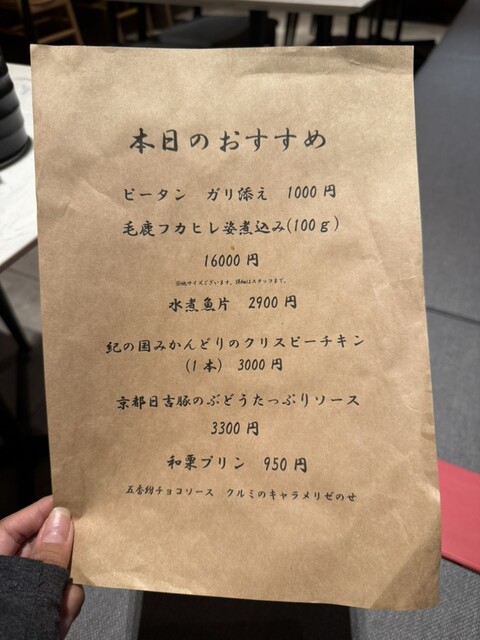 本日のおすすめ
ピータン ガリ添え 1000円
毛鹿フカヒレ姿煮込み(100g)
16000円
水煮魚片 2900円
紀の国みかんどりのクリスピーチキン
(1本) 3000円
京都日吉豚のぶどうたっぷりソース
3300円
和栗プリン 950円
五香粉チョコソース クルミのキャラメリゼのせ